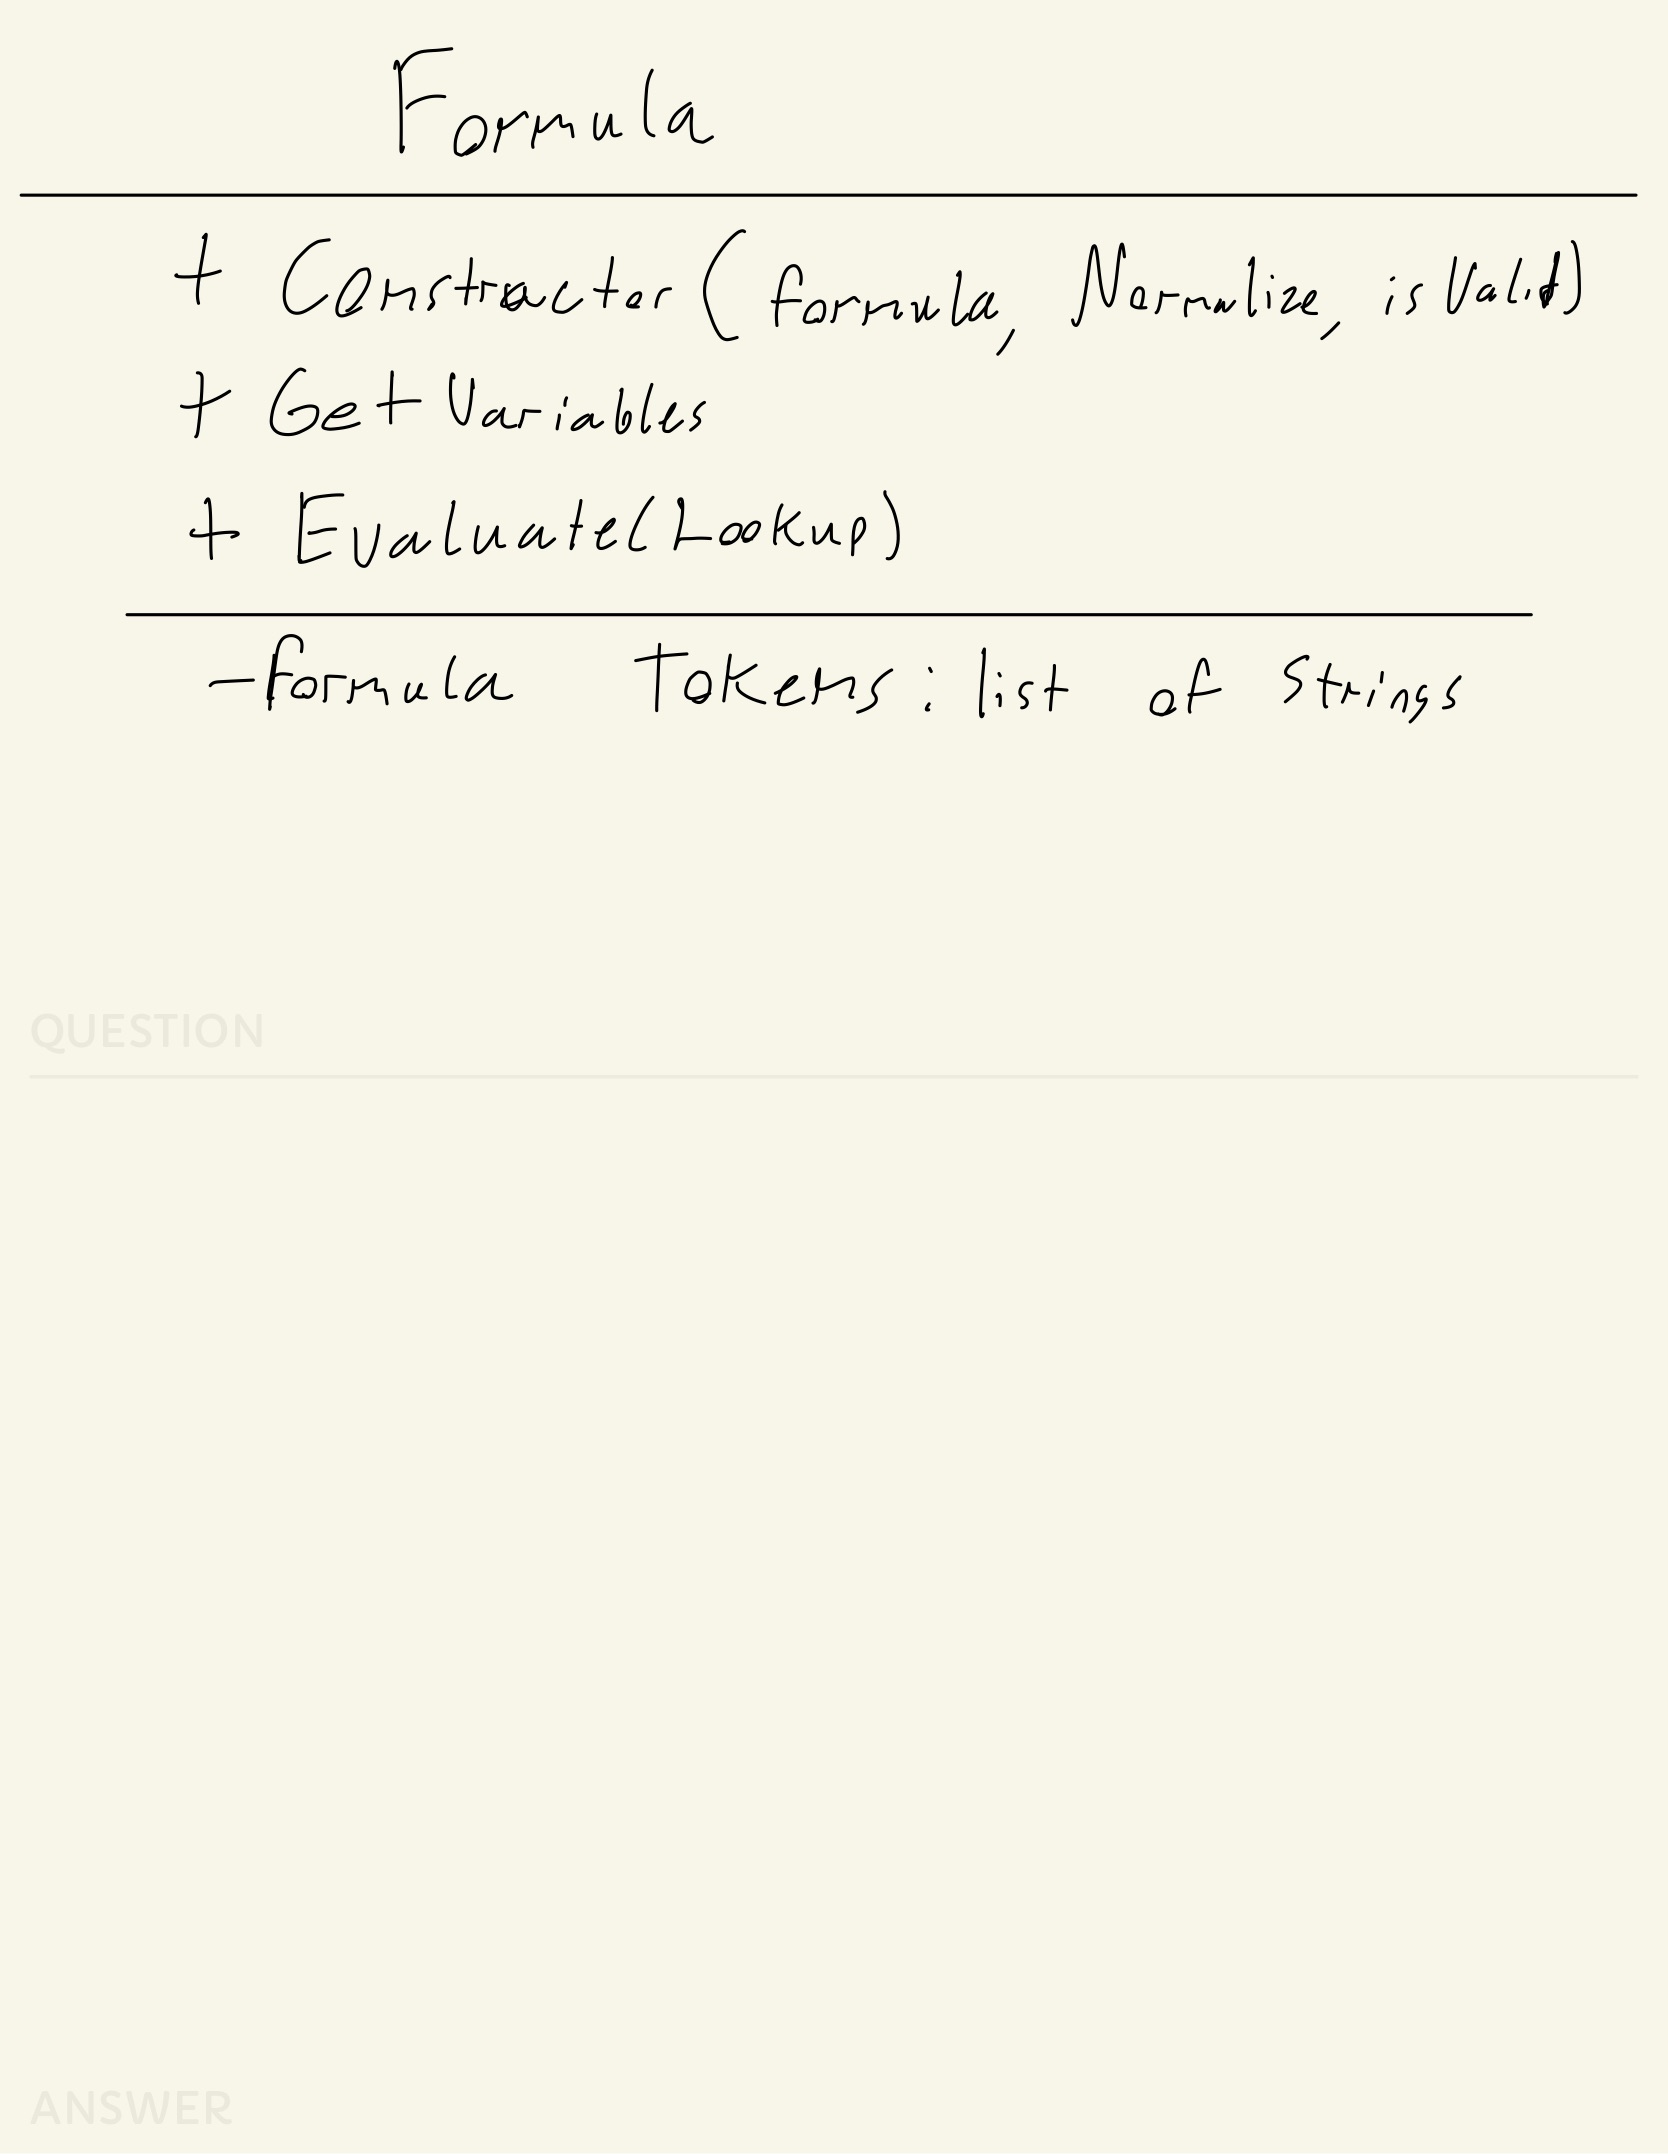 Formula
+ Constructor (formula, Normalize, isValid)
+ GetVariables
+ Evaluate(Lookup)
- formula Tokens : list of Strings
QUESTION
ANSWER